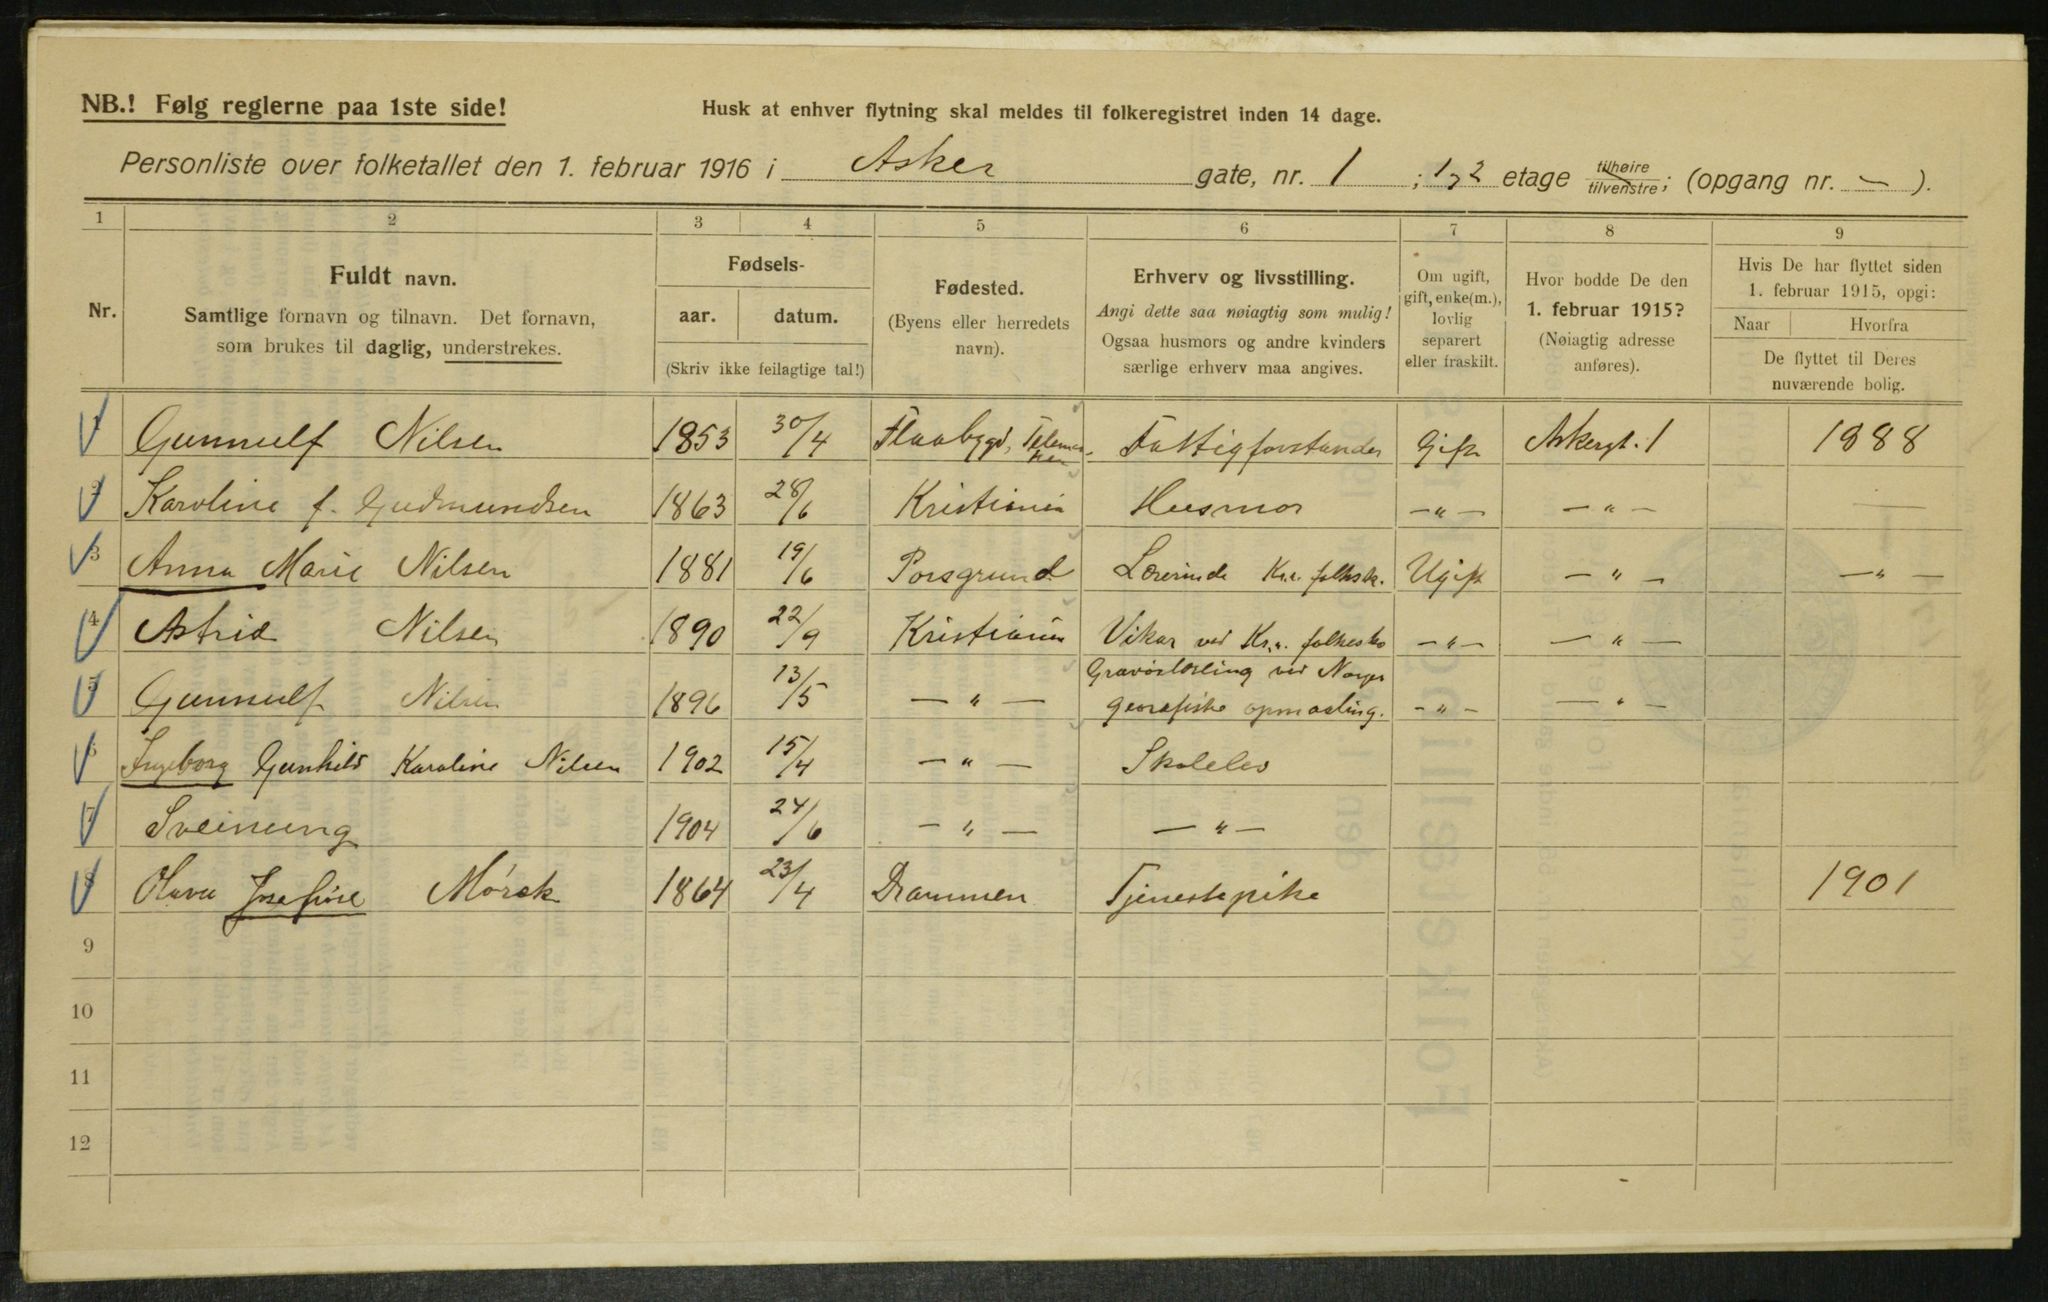 NB.! Følg reglerne paa 1ste side!
Husk at enhver flytning skal meldes til folkeregistret inden 14 dage.
Personliste over folketallet den 1. februar 1916 i Asker gate, nr. 1 ; 1,2 etage tilhøire/tilvenstre; (opgang nr. — ).
1 2 3 4 5 6 7 8 9
Nr.
Fuldt navn.
Samtlige fornavn og tilnavn. Det fornavn,
som brukes til daglig, understrekes.
Fødsels-
aar. datum.
(Skriv ikke feilagtige tal!)
Fødested.
(Byens eller herredets
navn).
Erhverv og livsstilling.
Angi dette saa nøiagtig som mulig!
Ogsaa husmors og andre kvinders
særlige erhverv maa angives.
Om ugift,
gift, enke(m.),
lovlig
separert
eller fraskilt.
Hvor bodde De den
1. februar 1915?
(Nøiagtig adresse
anføres).
Hvis De har flyttet siden
1. februar 1915, opgi:
Naar Hvorfra
De flyttet til Deres
nuværende bolig.
1 Gunnulf Nilsen 1853 30/4 Flaabygd, Telemarken Fattigforstander Gift Askergt. 1 1888
2 Karoline f. Gudmundsen 1863 28/6 Kristiania Husmor — " — — " — —
3 Anna Marie Nilsen 1881 19/6 Porsgrund Lærerinde Kr.a. folksk. Ugift — " — — " —
4 Astrid Nilsen 1890 22/9 Kristiania Vikar ved Kr.a. folkesko — " — — " —
5 Gunnulf Nilsen 1896 13/5 — " — Gravørlærling ved Norges
geografiske opmaaling. — " — — " —
6 Ingeborg Gunhild Karoline Nilsen 1902 15/4 — " — Skoleelev
7 Sveinung 1904 24/6 — " — — " —
8 Olava Josefine Mørck 1864 23/4 Drammen Tjenestepike 1901
9
10
11
12